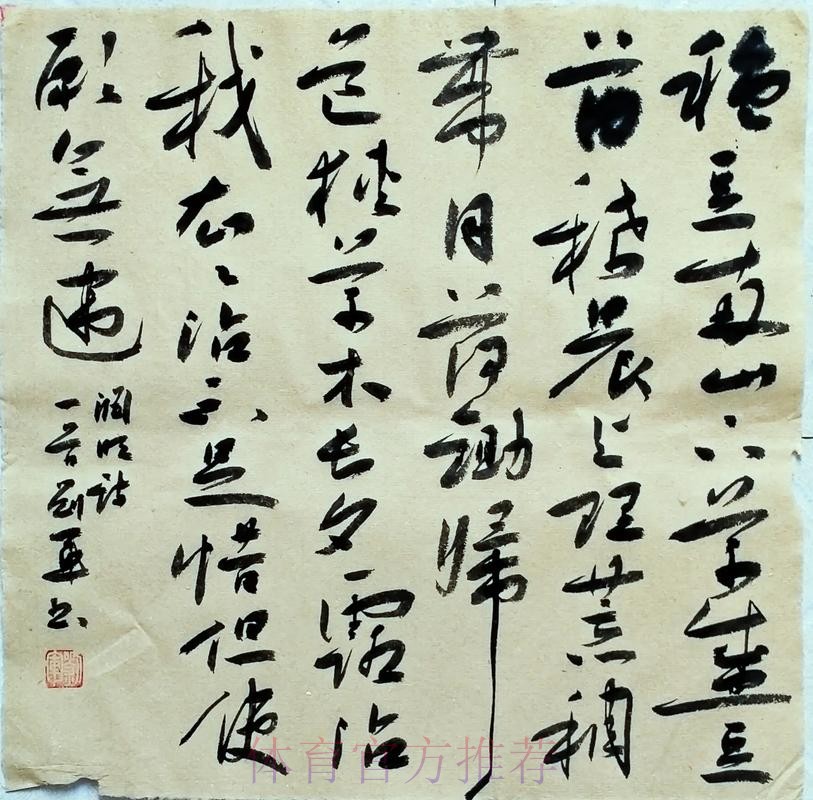 種豆南山下草盛豆
苗稀晨兴理荒穢
帶月荷鋤歸
道狹草木長夕露沾
我衣々沾不足惜但使
願無違
渊明诗
书
体育官方推荐